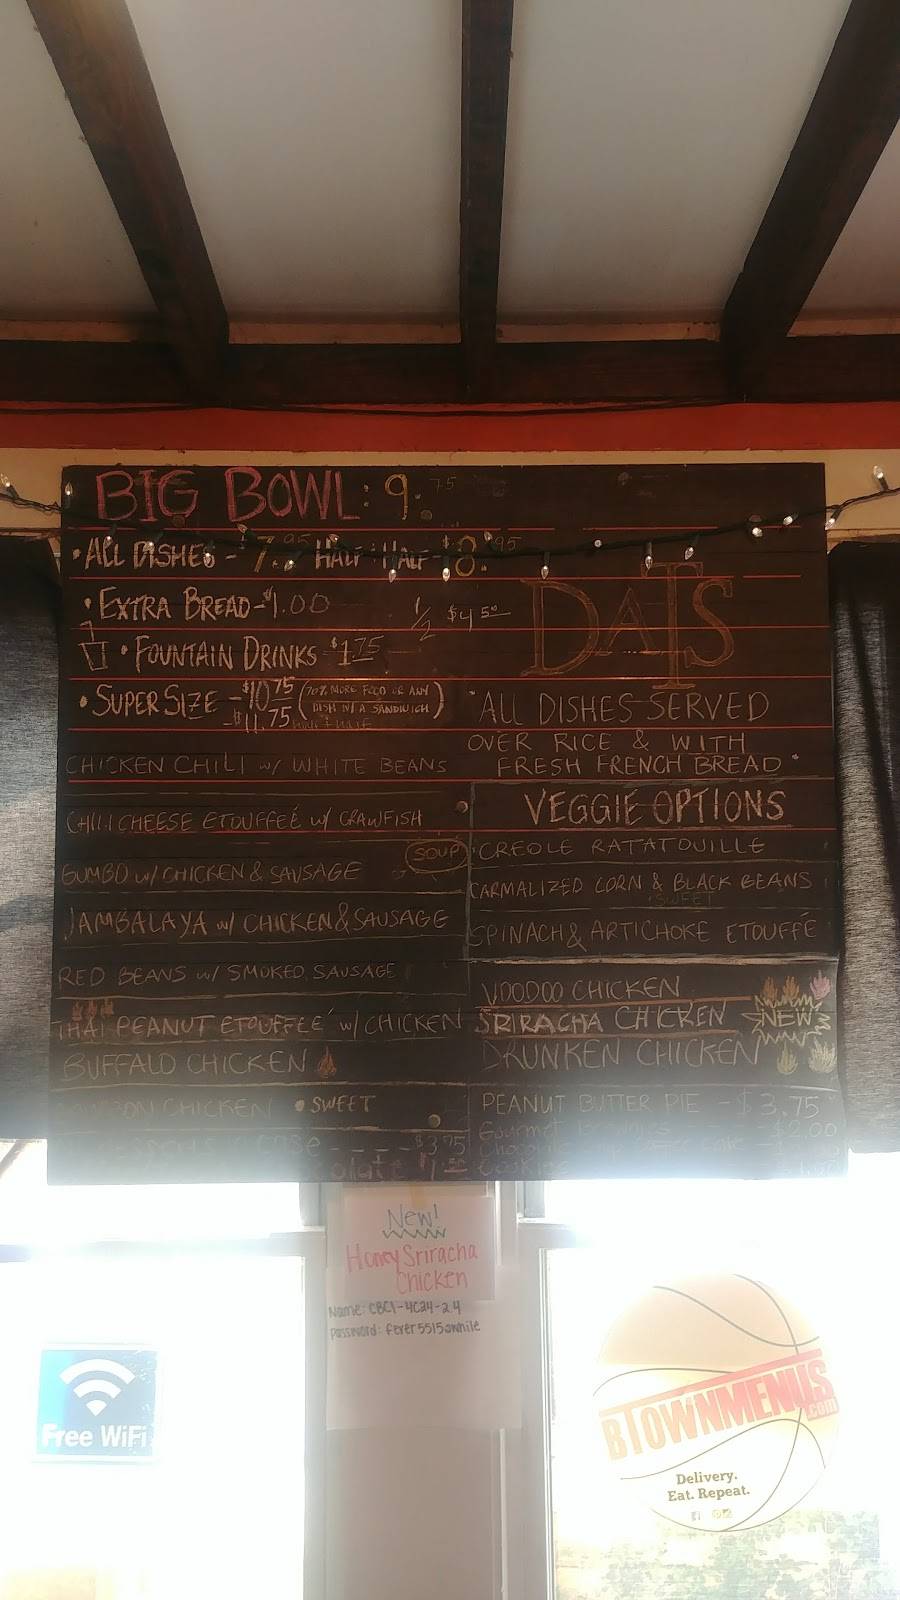 BIG BOWL: 9.75
• ALL DISHES - $7.95 HALF & HALF - $8.95
• EXTRA BREAD - $1.00 1/2 $4.50
• FOUNTAIN DRINKS $1.75
• SUPER SIZE - $10.75 (70% MORE FOOD OR ANY
DISH W/ A SANDWICH)
- $11.75 half & half
CHICKEN CHILI w/ WHITE BEANS
CHILI CHEESE ETOUFFEÉ w/ CRAWFISH
GUMBO w/ CHICKEN & SAUSAGE SOUP
JAMBALAYA w/ CHICKEN & SAUSAGE
RED BEANS w/ SMOKED SAUSAGE
THAI PEANUT ETOUFFEÉ w/ CHICKEN
BUFFALO CHICKEN
CHICKEN • SWEET
$3.75
DATS
"ALL DISHES SERVED
OVER RICE & WITH
FRESH FRENCH BREAD"
VEGGIE OPTIONS
CREOLE RATATOUILLE
CARMALIZED CORN & BLACK BEANS
SWEET
SPINACH & ARTICHOKE ETOUFFÉ
VOODOO CHICKEN
SRIRACHA CHICKEN NEW
DRUNKEN CHICKEN
PEANUT BUTTER PIE - $3.75
Gourmet $2.00
Cookie
New!
Honey Sriracha
Chicken
Name: CBC1-4C24-2.4
password: fever5515awhile
Free WiFi
BTOWNMENUS
.com
Delivery.
Eat. Repeat.